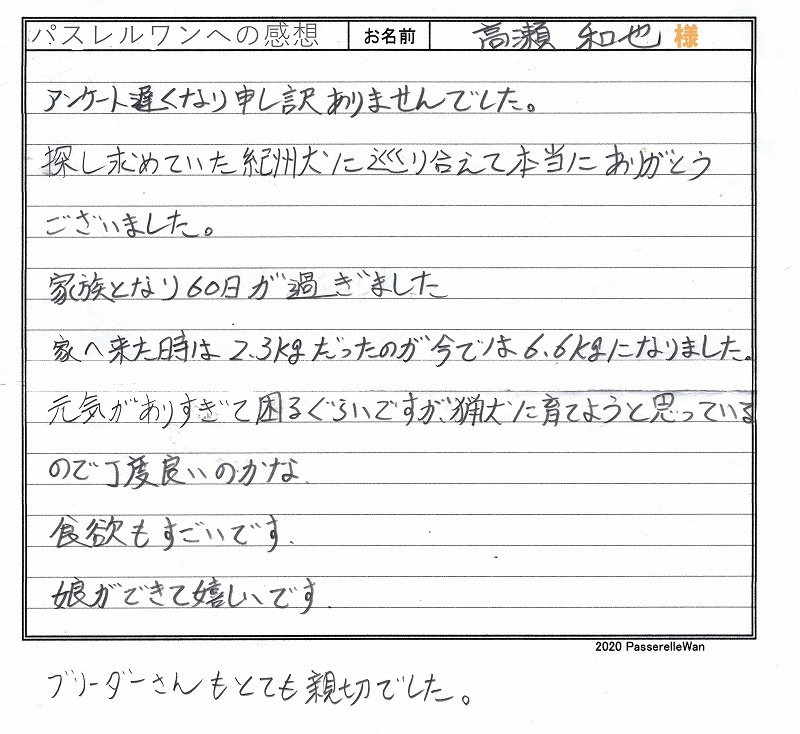 パスレルワンへの感想 お名前 高瀬 和也 様
アンケート遅くなり申し訳ありませんでした。
探し求めていた紀州犬に巡り合えて本当にありがとう
ございました。
家族となり60日が過ぎました
家へ来た時は2.3kgだったのが今では6.6kgになりました。
元気がありすぎて困るぐらいですが、猟犬に育てようと思っている
ので丁度良いのかな.
食欲もすごいです.
娘ができて嬉しいです.
2020 PasserelleWan
ブリーダーさんもとても親切でした。